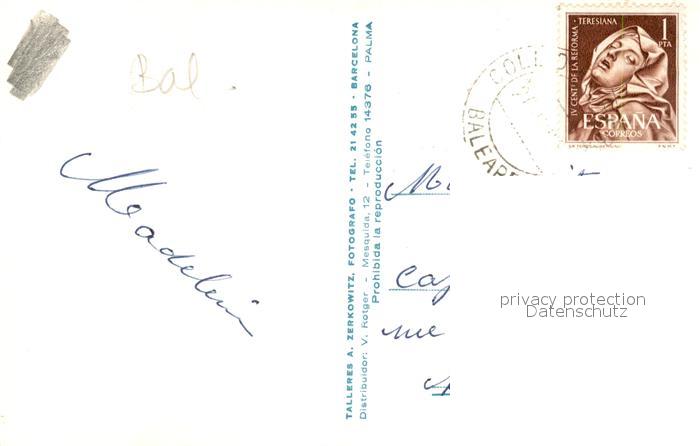 Bal.
Madelein
TALLERES A. ZERKOWITZ, FOTOGRAFO - TEL. 21 42 55 - BARCELONA
Distribuidor: V. Rotger - Mesquida, 12 - Teléfono 14376 - PALMA
Prohibida la reproducción
IV CENTº DE LA REFORMA · TERESIANA
1
PTA
ESPAÑA
CORREOS
F.N.M.T.
COLL
BALEAR
privacy protection
Datenschutz